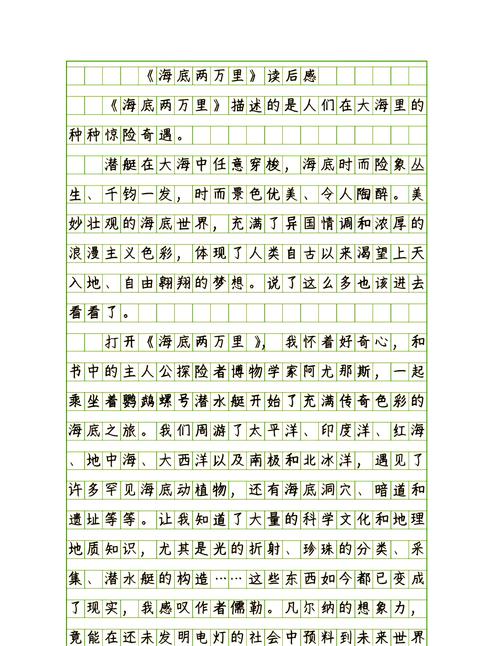 《海底两万里》读后感
《海底两万里》描述的是人们在大海里的
种种惊险奇遇。
潜艇在大海中任意穿梭，海底时而险象丛
生、千钧一发，时而景色优美、令人陶醉。美
妙壮观的海底世界，充满了异国情调和浓厚的
浪漫主义色彩，体现了人类自古以来渴望上天
入地、自由翱翔的梦想。说了这么多也该进去
看看了。
打开《海底两万里》，我怀着好奇心，和
书中的主人公探险者博物学家阿尤那斯，一起
乘坐着鹦鹉螺号潜水艇开始了充满传奇色彩的
海底之旅。我们周游了太平洋、印度洋、红海
、地中海、大西洋以及南极和北冰洋，遇见了
许多罕见海底动植物，还有海底洞穴、暗道和
遗址等等。让我知道了大量的科学文化和地理
地质知识，尤其是光的折射、珍珠的分类、采
集、潜水艇的构造……这些东西如今都已变成
了现实，我感叹作者儒勒。凡尔纳的想象力，
竟能在还未发明电灯的社会中预料到未来世界